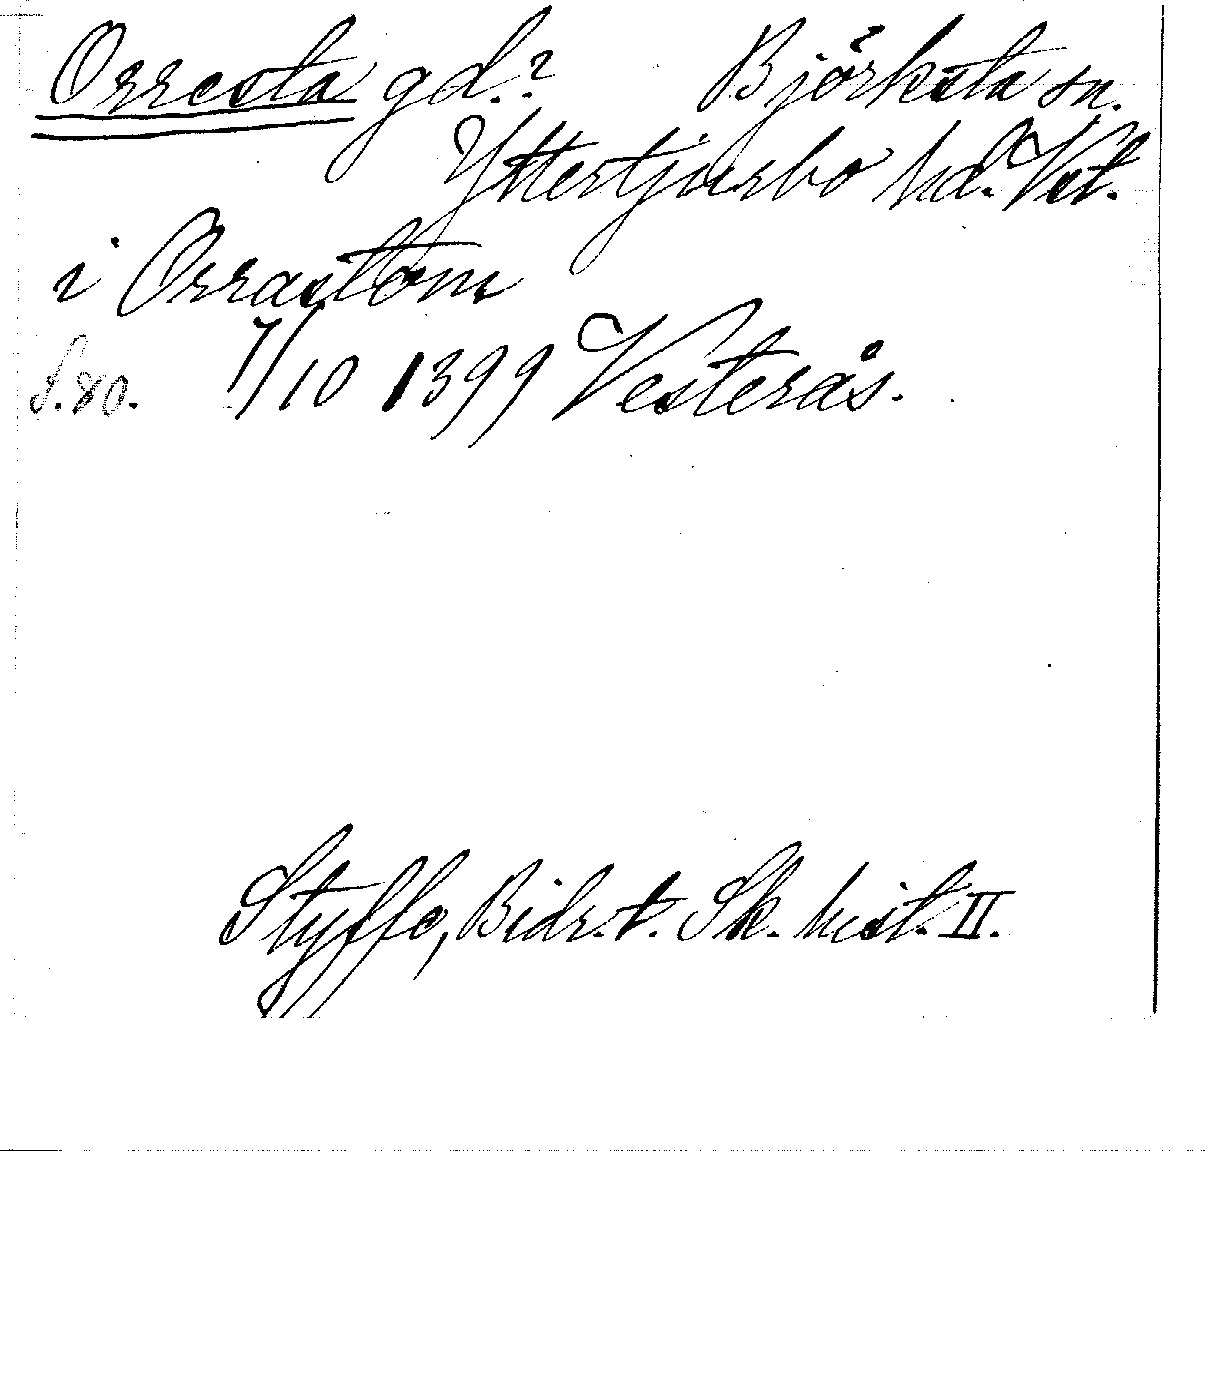 Orresta gd.? Björksta sn.
Yttertjurbo hd. Vst.
i Orrastom
S.80. 7/10 1399 Vesterås.
Styffe, Bidr. t. Sk. hist. II.